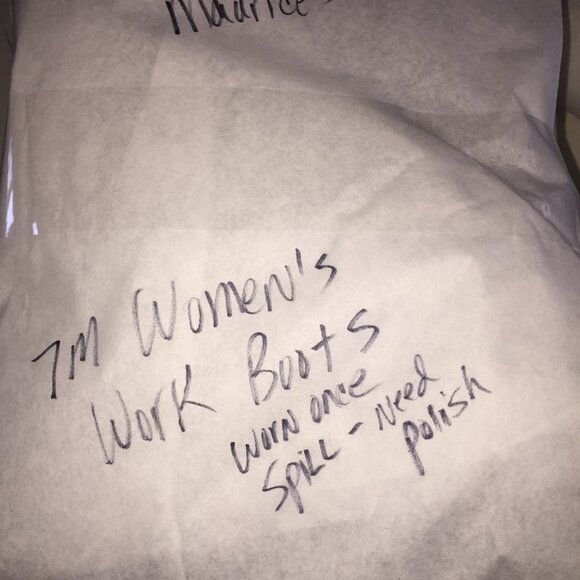 Maurice's
7M Women's
Work Boots
worn once
Spill - Need
polish